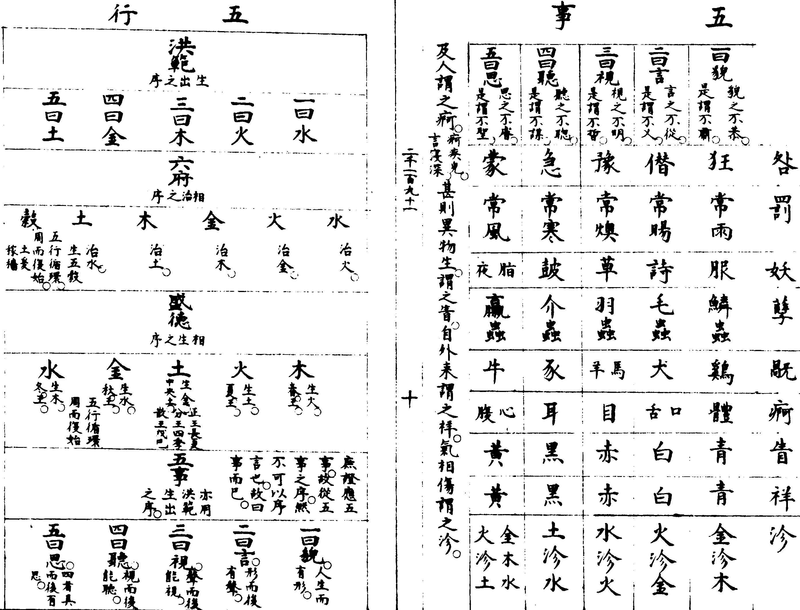 五事
咎 罰 妖 孽 旤 痾 眚 祥 沴
一曰貌 貌之不恭是謂不肅 狂 常雨 服 鱗蟲 鷄 體 青 青 金沴木
二曰言 言之不從是謂不乂 僭 常暘 詩 毛蟲 犬 口舌 白 白 火沴金
三曰視 視之不明是謂不哲 豫 常燠 草 羽蟲 馬羊 目 赤 赤 水沴火
四曰聽 聽之不聰是謂不謀 急 常寒 鼓 介蟲 豕 耳 黑 黑 土沴水
五曰思 思之不睿是謂不聖 蒙 常風 脂夜 臝蟲 牛 心腹 黃 黃 金木水火沴土
及人謂之痾痾疾皃言寖深甚則異物生謂之眚自外來謂之祥氣相傷謂之沴
二千一百九十一
十
五行
洪範
生出之序
一曰水 二曰火 三曰木 四曰金 五曰土
六府
相治之序
水 治火
火 治金
金 治木
木 治土
土 治水生五穀
穀 五行循環周而復始土爰稼穡
盛德
相生之序
木 生火春王
火 生土夏王
土 生金中央土正王長夏分王四季散王戊己
金 生水秋王
水 生木冬王
五行循環周而復始
五事
亦用洪範生出之序
庶證應五事故從五事之序然不可以序言也故曰事而已
一曰貌 人生而有形
二曰言 形而後有聲
三曰視 聲而後能視
四曰聽 視而後能聽
五曰思 四者具而後有思